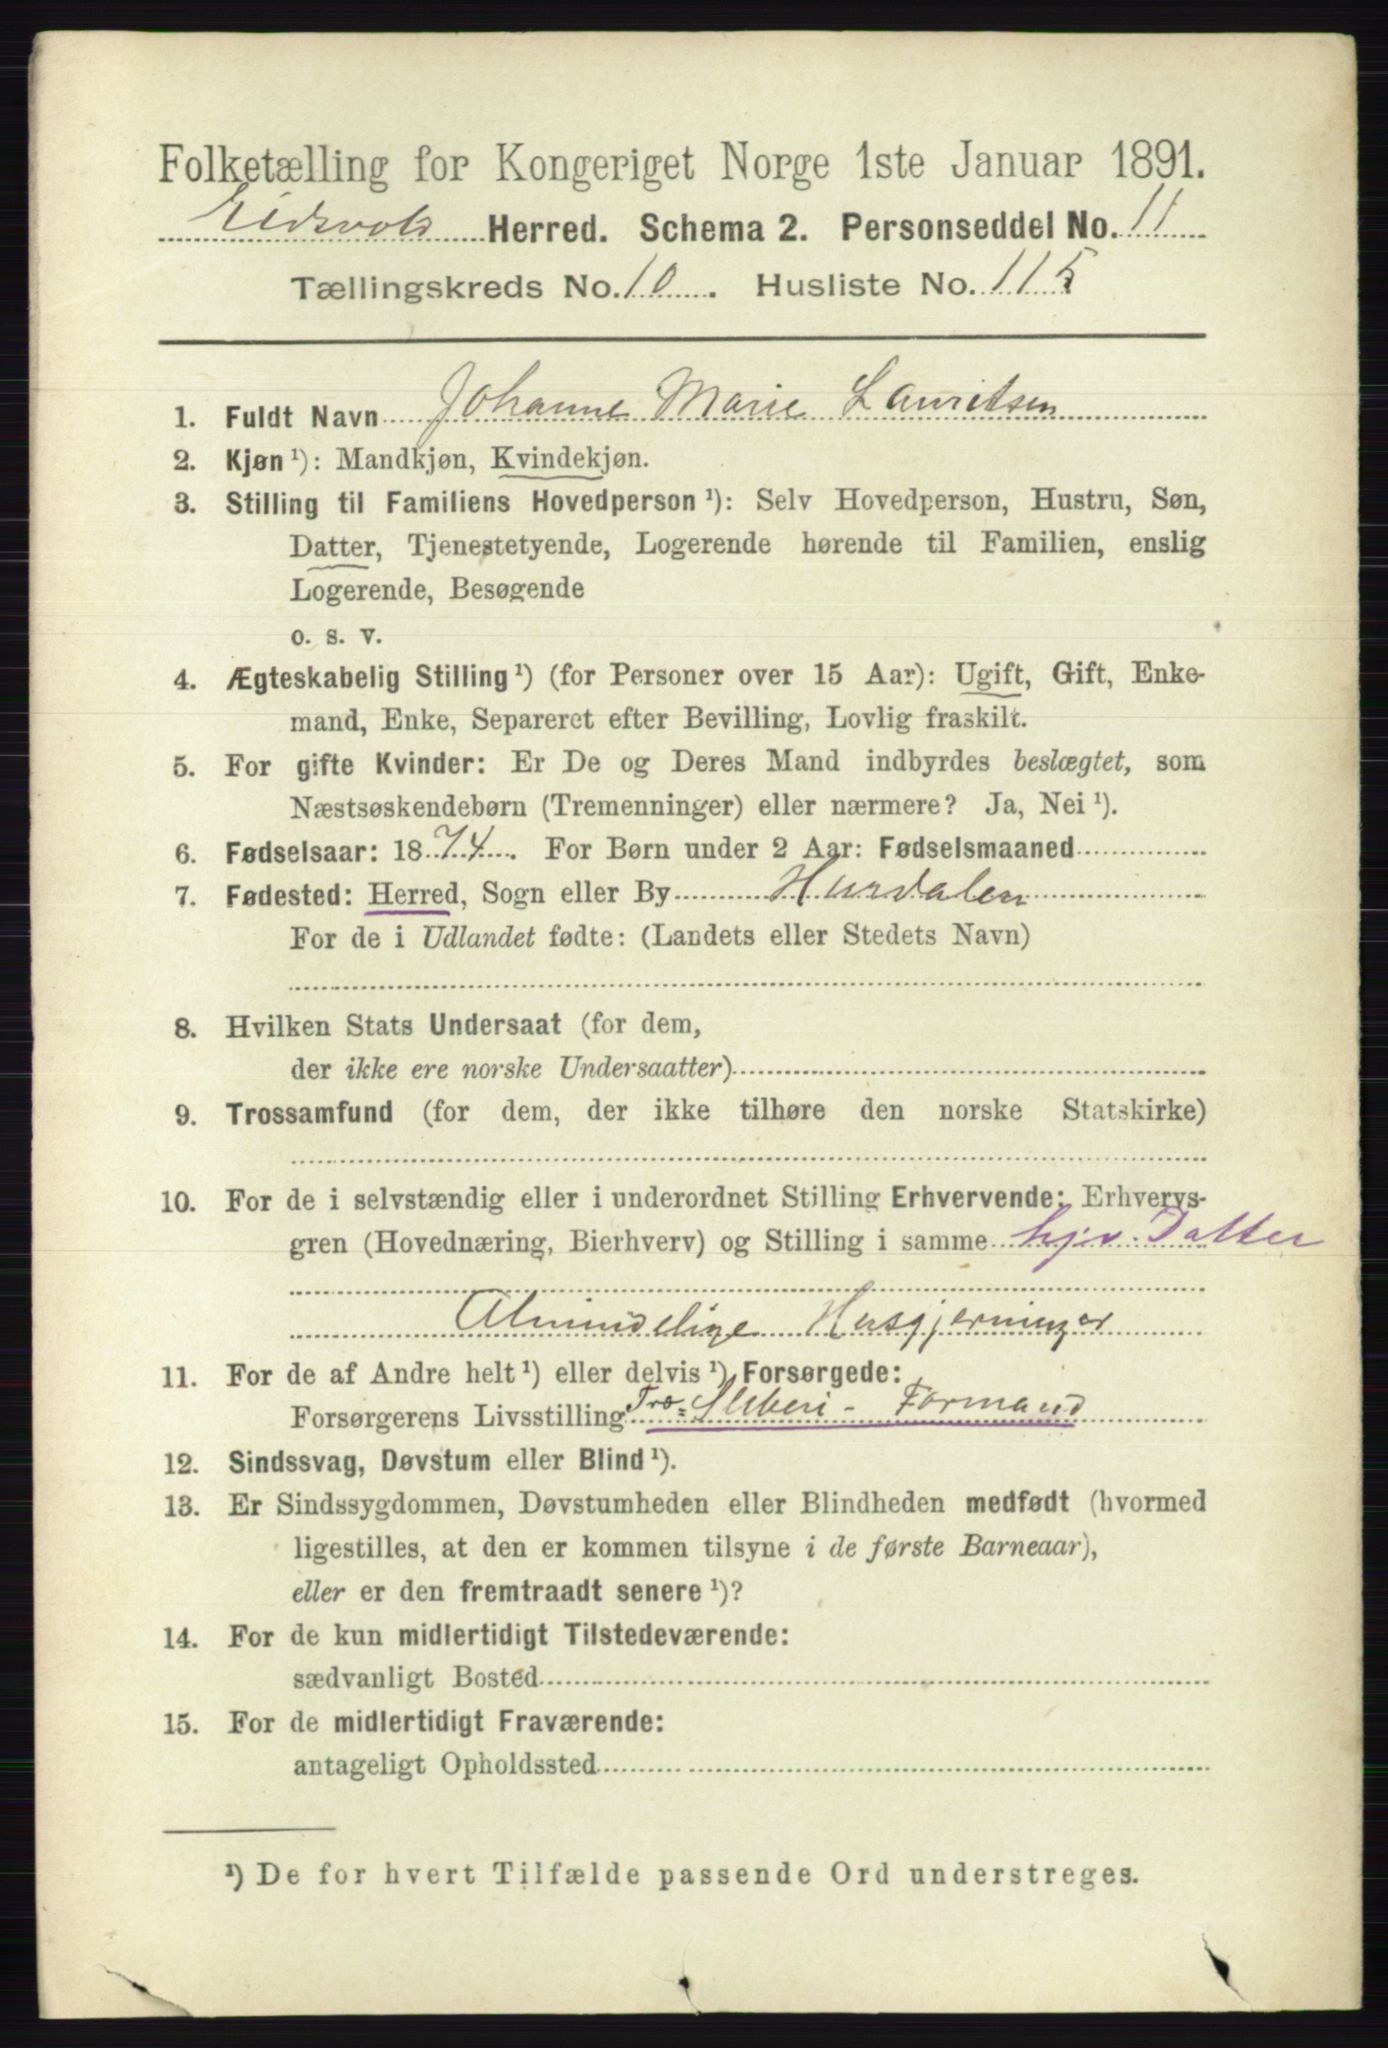 Folketælling for Kongeriget Norge 1ste Januar 1891.
Eidsvold Herred. Schema 2. Personseddel No. 11
Tællingskreds No. 10. Husliste No. 115
1. Fuldt Navn Johanne Marie Lauritsen
2. Kjøn ¹): Mandkjøn, Kvindekjøn.
3. Stilling til Familiens Hovedperson ¹): Selv Hovedperson, Hustru, Søn,
Datter, Tjenestetyende, Logerende hørende til Familien, enslig
Logerende, Besøgende
o. s. v.
4. Ægteskabelig Stilling ¹) (for Personer over 15 Aar): Ugift, Gift, Enke-
mand, Enke, Separeret efter Bevilling, Lovlig fraskilt.
5. For gifte Kvinder: Er De og Deres Mand indbyrdes beslægtet, som
Næstsøskendebørn (Tremenninger) eller nærmere? Ja, Nei ¹).
6. Fødselsaar: 1874. For Børn under 2 Aar: Fødselsmaaned
7. Fødested: Herred, Sogn eller By Hurdalen
For de i Udlandet fødte: (Landets eller Stedets Navn)
8. Hvilken Stats Undersaat (for dem,
der ikke ere norske Undersaatter)
9. Trossamfund (for dem, der ikke tilhøre den norske Statskirke)
10. For de i selvstændig eller i underordnet Stilling Erhvervende: Erhvervs-
gren (Hovednæring, Bierhverv) og Stilling i samme hjv. Datter
Almindelige Husgjerninger
11. For de af Andre helt ¹) eller delvis ¹) Forsørgede:
Forsørgerens Livsstilling Træ-Sliberi-Formand
12. Sindssvag, Døvstum eller Blind ¹).
13. Er Sindssygdommen, Døvstumheden eller Blindheden medfødt (hvormed
ligestilles, at den er kommen tilsyne i de første Barneaar),
eller er den fremtraadt senere ¹)?
14. For de kun midlertidigt Tilstedeværende:
sædvanligt Bosted
15. For de midlertidigt Fraværende:
antageligt Opholdssted
¹) De for hvert Tilfælde passende Ord understreges.